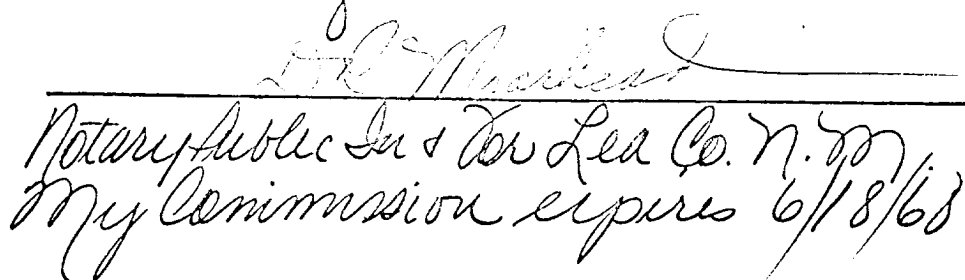 Notary Public In & For Lea Co. N.M.
My Commission expires 6/18/68